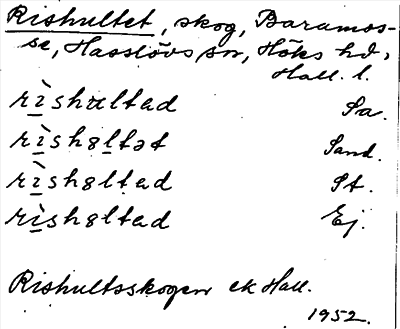 Rishultet, skog, Baramos-
se, Hasslövs sn, Höks hd,
Hall. l.
rìshultad Sa.
rìshɞltət Sand.
rìshɞltad St.
rìshɞltad Ej.
Rishultsskogen ek Hall.
1952.